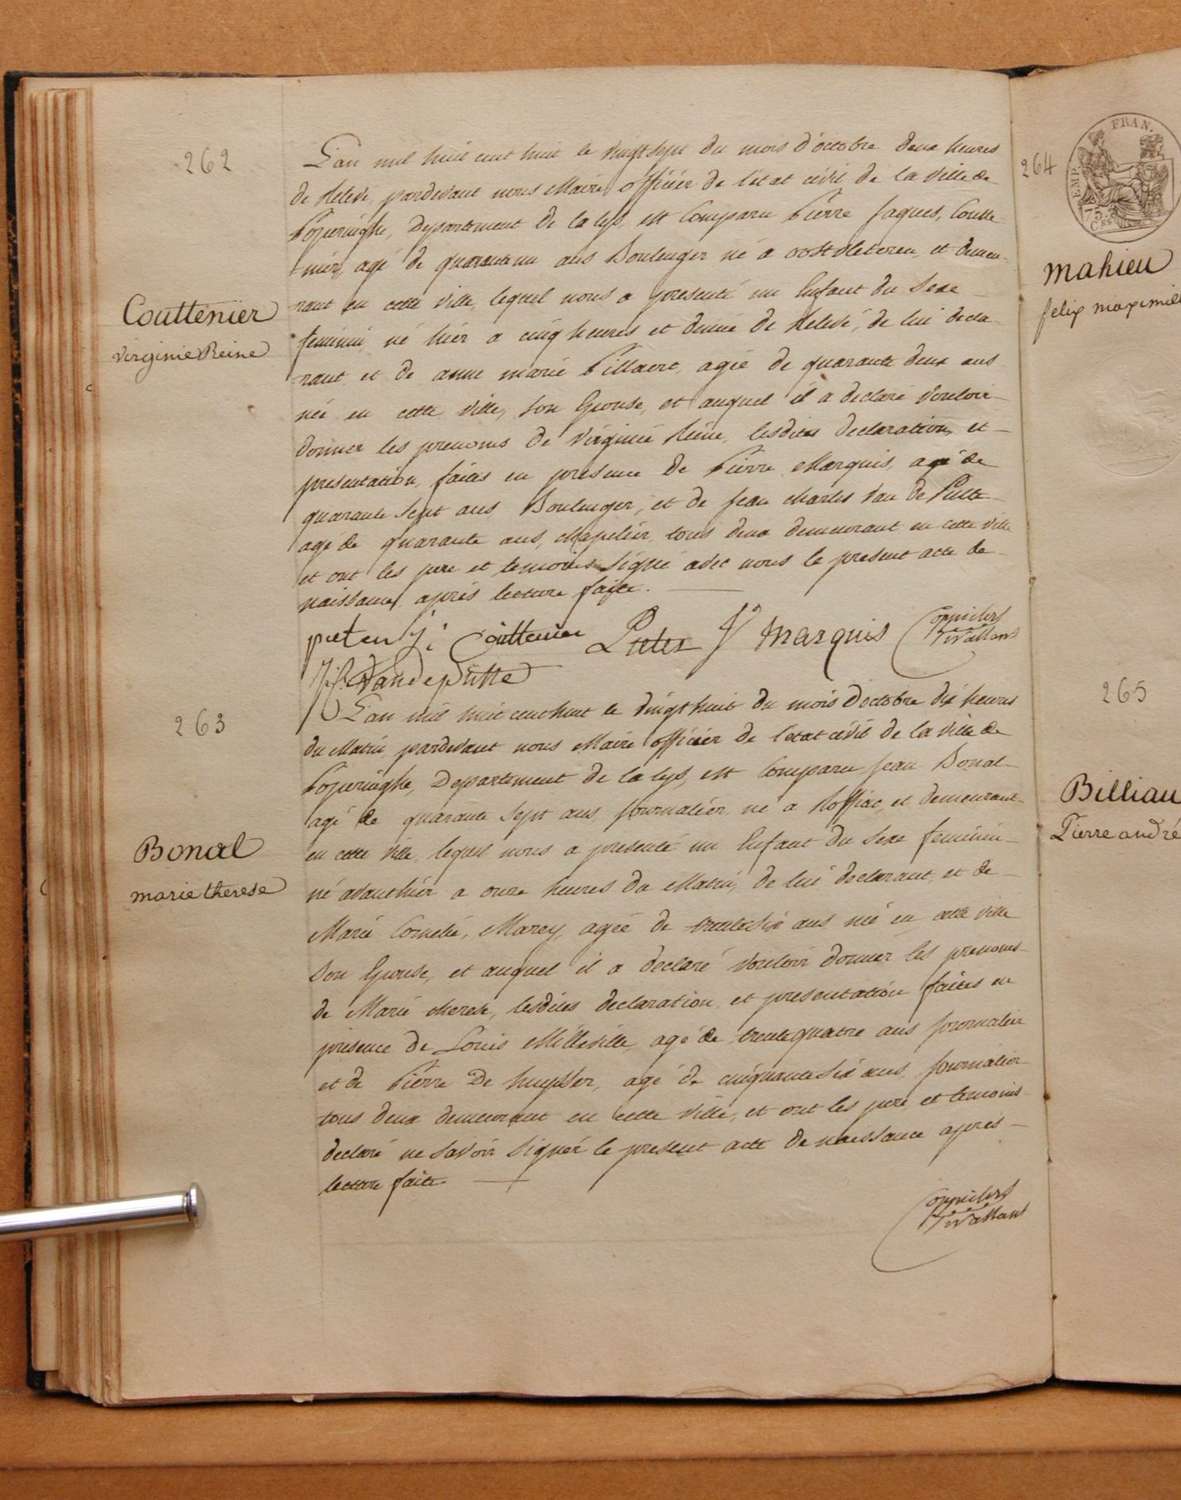 262
L'an mil huit cent huit le vingt sept du mois d'octobre deux heures
de Relevé, pardevant nous Maire officier de l'etat civil de la ville de
Poperinghe, Departement de la lys, est Comparu Pierre Jaques, Coutte
nier, agé de quarante un ans Boulenger né a oostvleteren, et demeu
rant en cette ville, lequel nous a presenté un Enfant du Sexe
feminin né hier a cinq heures et demie de Relevé, de lui decla
rant et de anne marie Pillaert, agée de quarante deux ans
née en cette ville, son Epouse, et auquel il a declaré vouloir
donner les prenoms de Virginie Reine, lesdites declaration, et
presentation, faites en presence de Pierre Marquis, agé de
quarante Sept ans Boulenger, et de Jean charles Van de Putte
agé de quarante ans, chapelier, tous deux demeurant en cette ville
et ont les pere et temoins Signé avec nous le present acte de
naissance, après lecture faite.
Couttenier
virginie Reine
pieter j: Couttenier Pieter Marquis
J: C: Vandeputte
263
L'an mil huit cent huit le vingt huit du mois d'octobre dix heures
du Matin pardevant nous Maire officier de l'etat civil de la ville de
Poperinghe, Departement de la lys, est Comparu Jean Bonal
agé de quarante Sept ans journalier né a Roffiac, et demeurant
en cette ville, lequel nous a presenté un Enfant du Sexe feminin
né avant hier a onze heures du Matin, de lui declarant et de
Marie Cornelie, Marey, agée de trente Six ans née en cette ville
Son Epouse, et auquel il a declaré vouloir donner les prenoms
de Marie therese, lesdites declaration, et presentation faites en
presence de Louis Milleville, agé de trente quatre ans journalier
et de Pierre De huysser, agé de cinquante Six ans, journalier
tous deux demeurant en cette ville, et ont les pere et temoins
declaré ne savoir Signer le present acte de naissance après
lecture faite
Bonal
marie therese
264
FRAN.
EMP.
75
mahieu
felix maximil
265
Billiau
Pierre andré